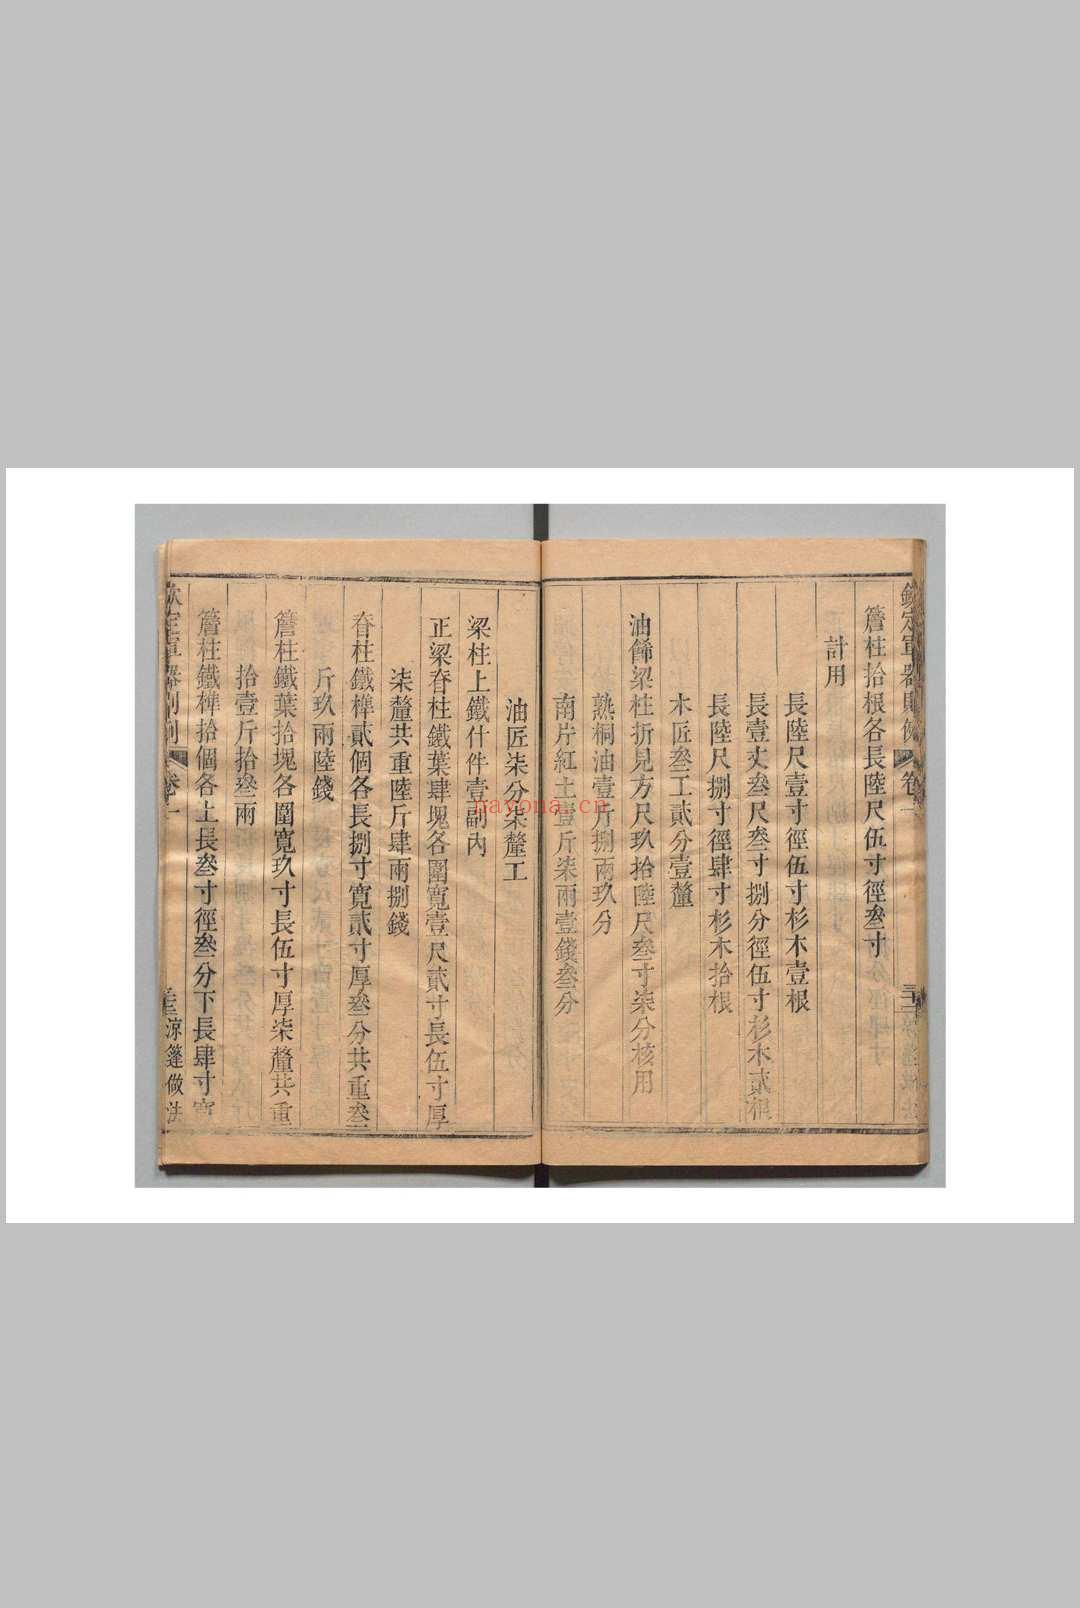 欽定軍器則例 卷一
簷柱拾根各長陸尺伍寸徑叄寸
計用
長陸尺壹寸徑伍寸杉木壹根
長壹丈叄尺叄寸捌分徑伍寸杉木貳根
長陸尺捌寸徑肆寸杉木拾根
木匠叄工貳分壹釐
油餙梁柱折見方尺玖拾陸尺叄寸柒分核用
熟桐油壹斤捌兩玖分
南片紅土壹斤柒兩壹錢叄分
油匠柒分柒釐工
梁柱上鐵什件壹副內
正梁脊柱鐵葉肆塊各圍寬壹尺貳寸長伍寸厚
柒釐共重陸斤肆兩捌錢
脊柱鐵椊貳個各長捌寸寬貳寸厚叄分共重叄
斤玖兩陸錢
簷柱鐵葉拾塊各圍寬玖寸長伍寸厚柒釐共重
拾壹斤拾叄兩
簷柱鐵椊拾個各上長叄寸徑叄分下長肆寸寬
欽定軍器則例 卷一 涼篷做法
nayona.cn